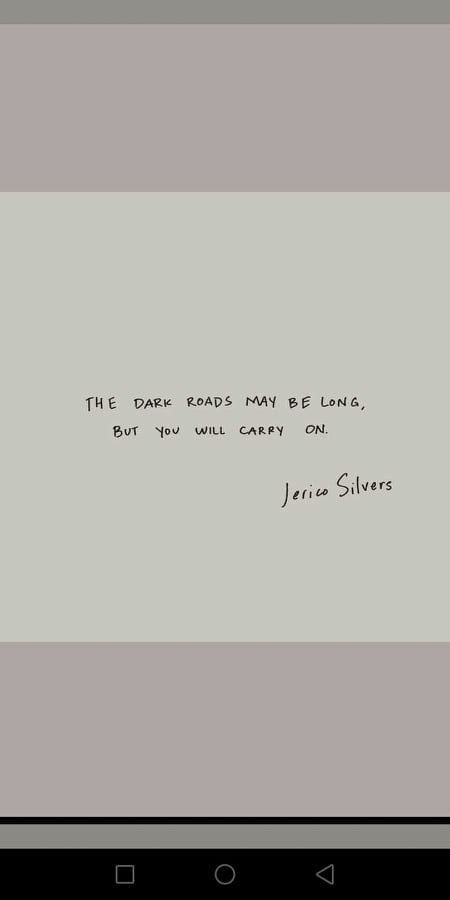 THE DARK ROADS MAY BE LONG,
BUT YOU WILL CARRY ON.
Jerico Silvers